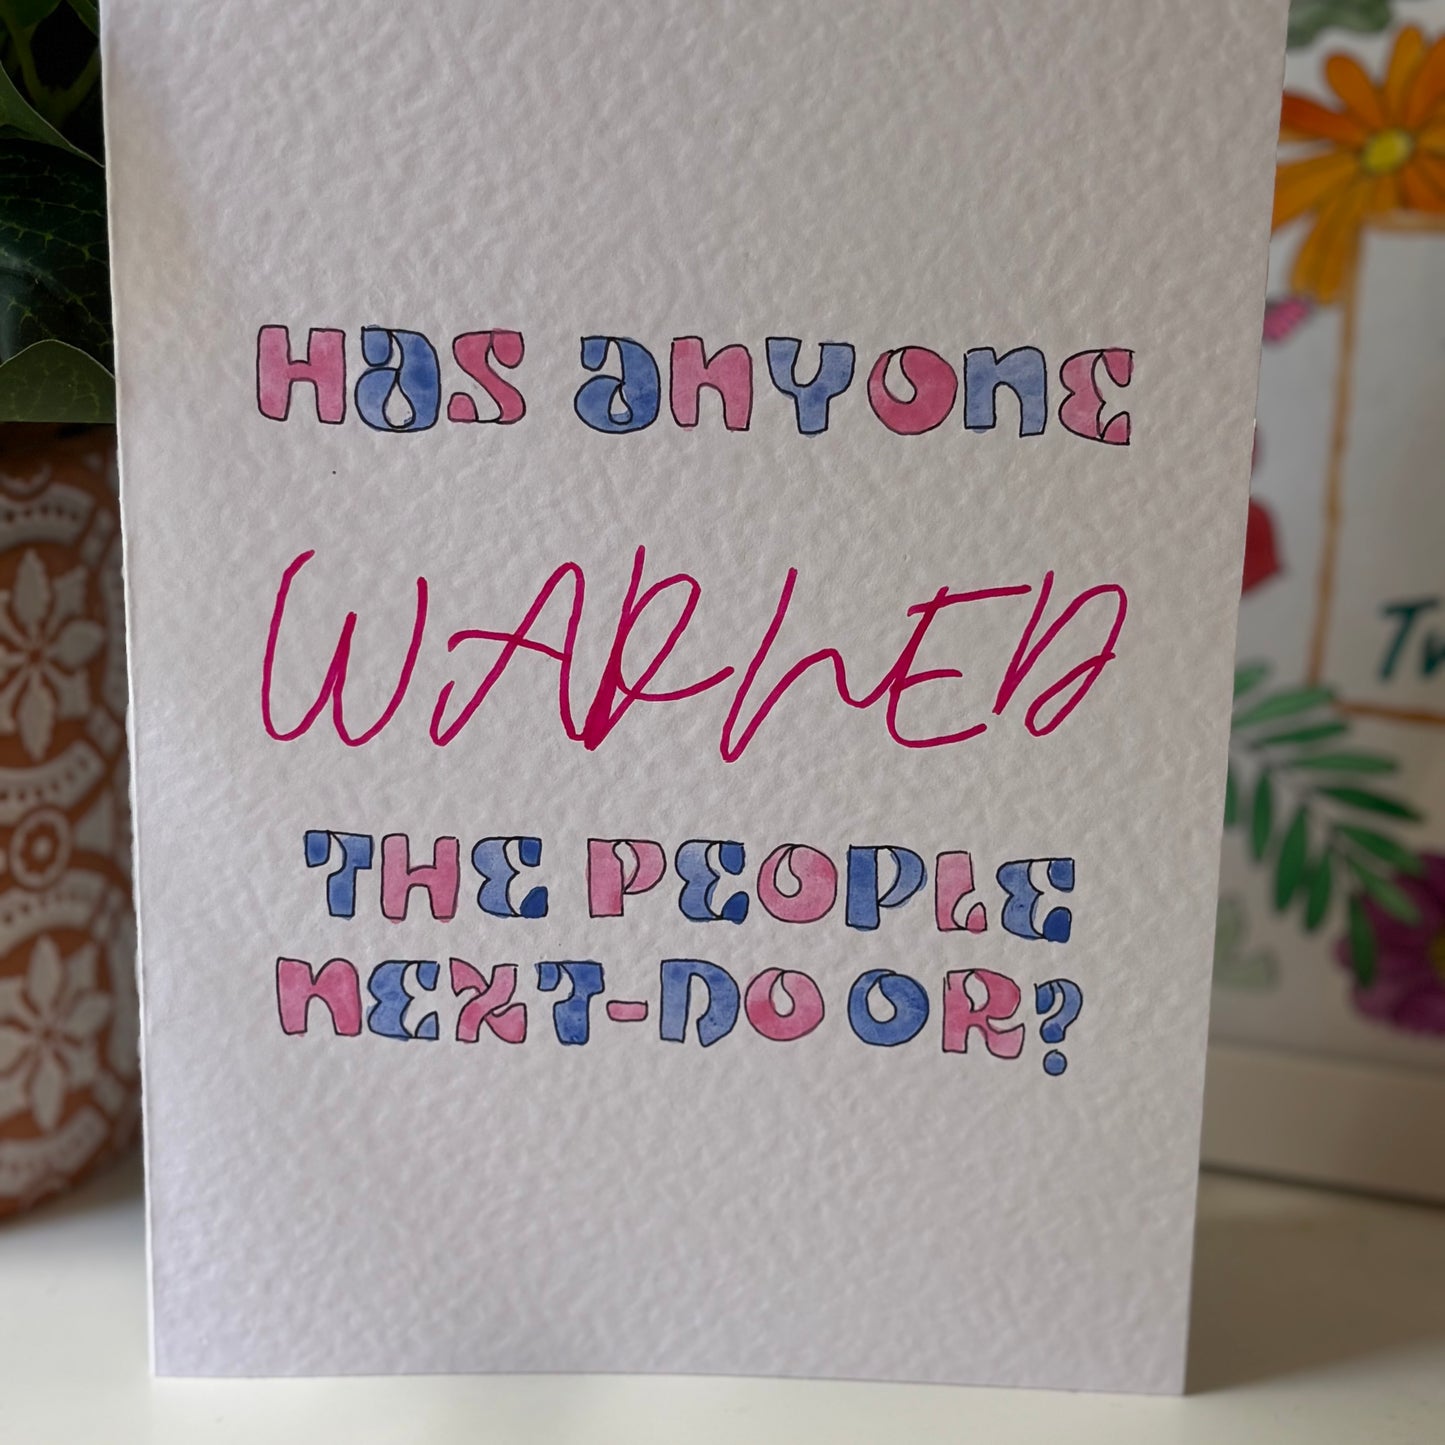 HAS ANYONE
WARNED
THE PEOPLE
NEXT-DOOR?